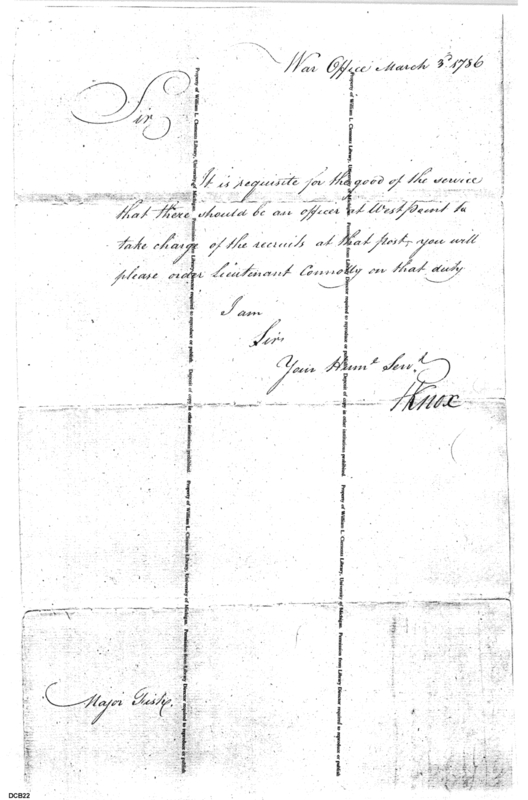 War Office March 3d 1786
Sir
It is requisite for the good of the service
that there should be an officer at West Point to
take charge of the recruits at that post, you will
please order Lieutenant Connolly on that duty
I am
Sir
Your Humt Servt
HKnox
Major Fish.
Property of William L. Clements Library, University of Michigan. Permission from Library Director required to reproduce or publish. Deposit of copy in other institutions prohibited. Property of William L. Clements Library, University of Michigan. Permission from Library Director required to reproduce or publish
Property of William L. Clements Library, University of Michigan. Permission from Library Director required to reproduce or publish. Deposit of copy in other institutions prohibited. Property of William L. Clements Library, University of Michigan. Permission from Library Director required to reproduce or publish
DCB22